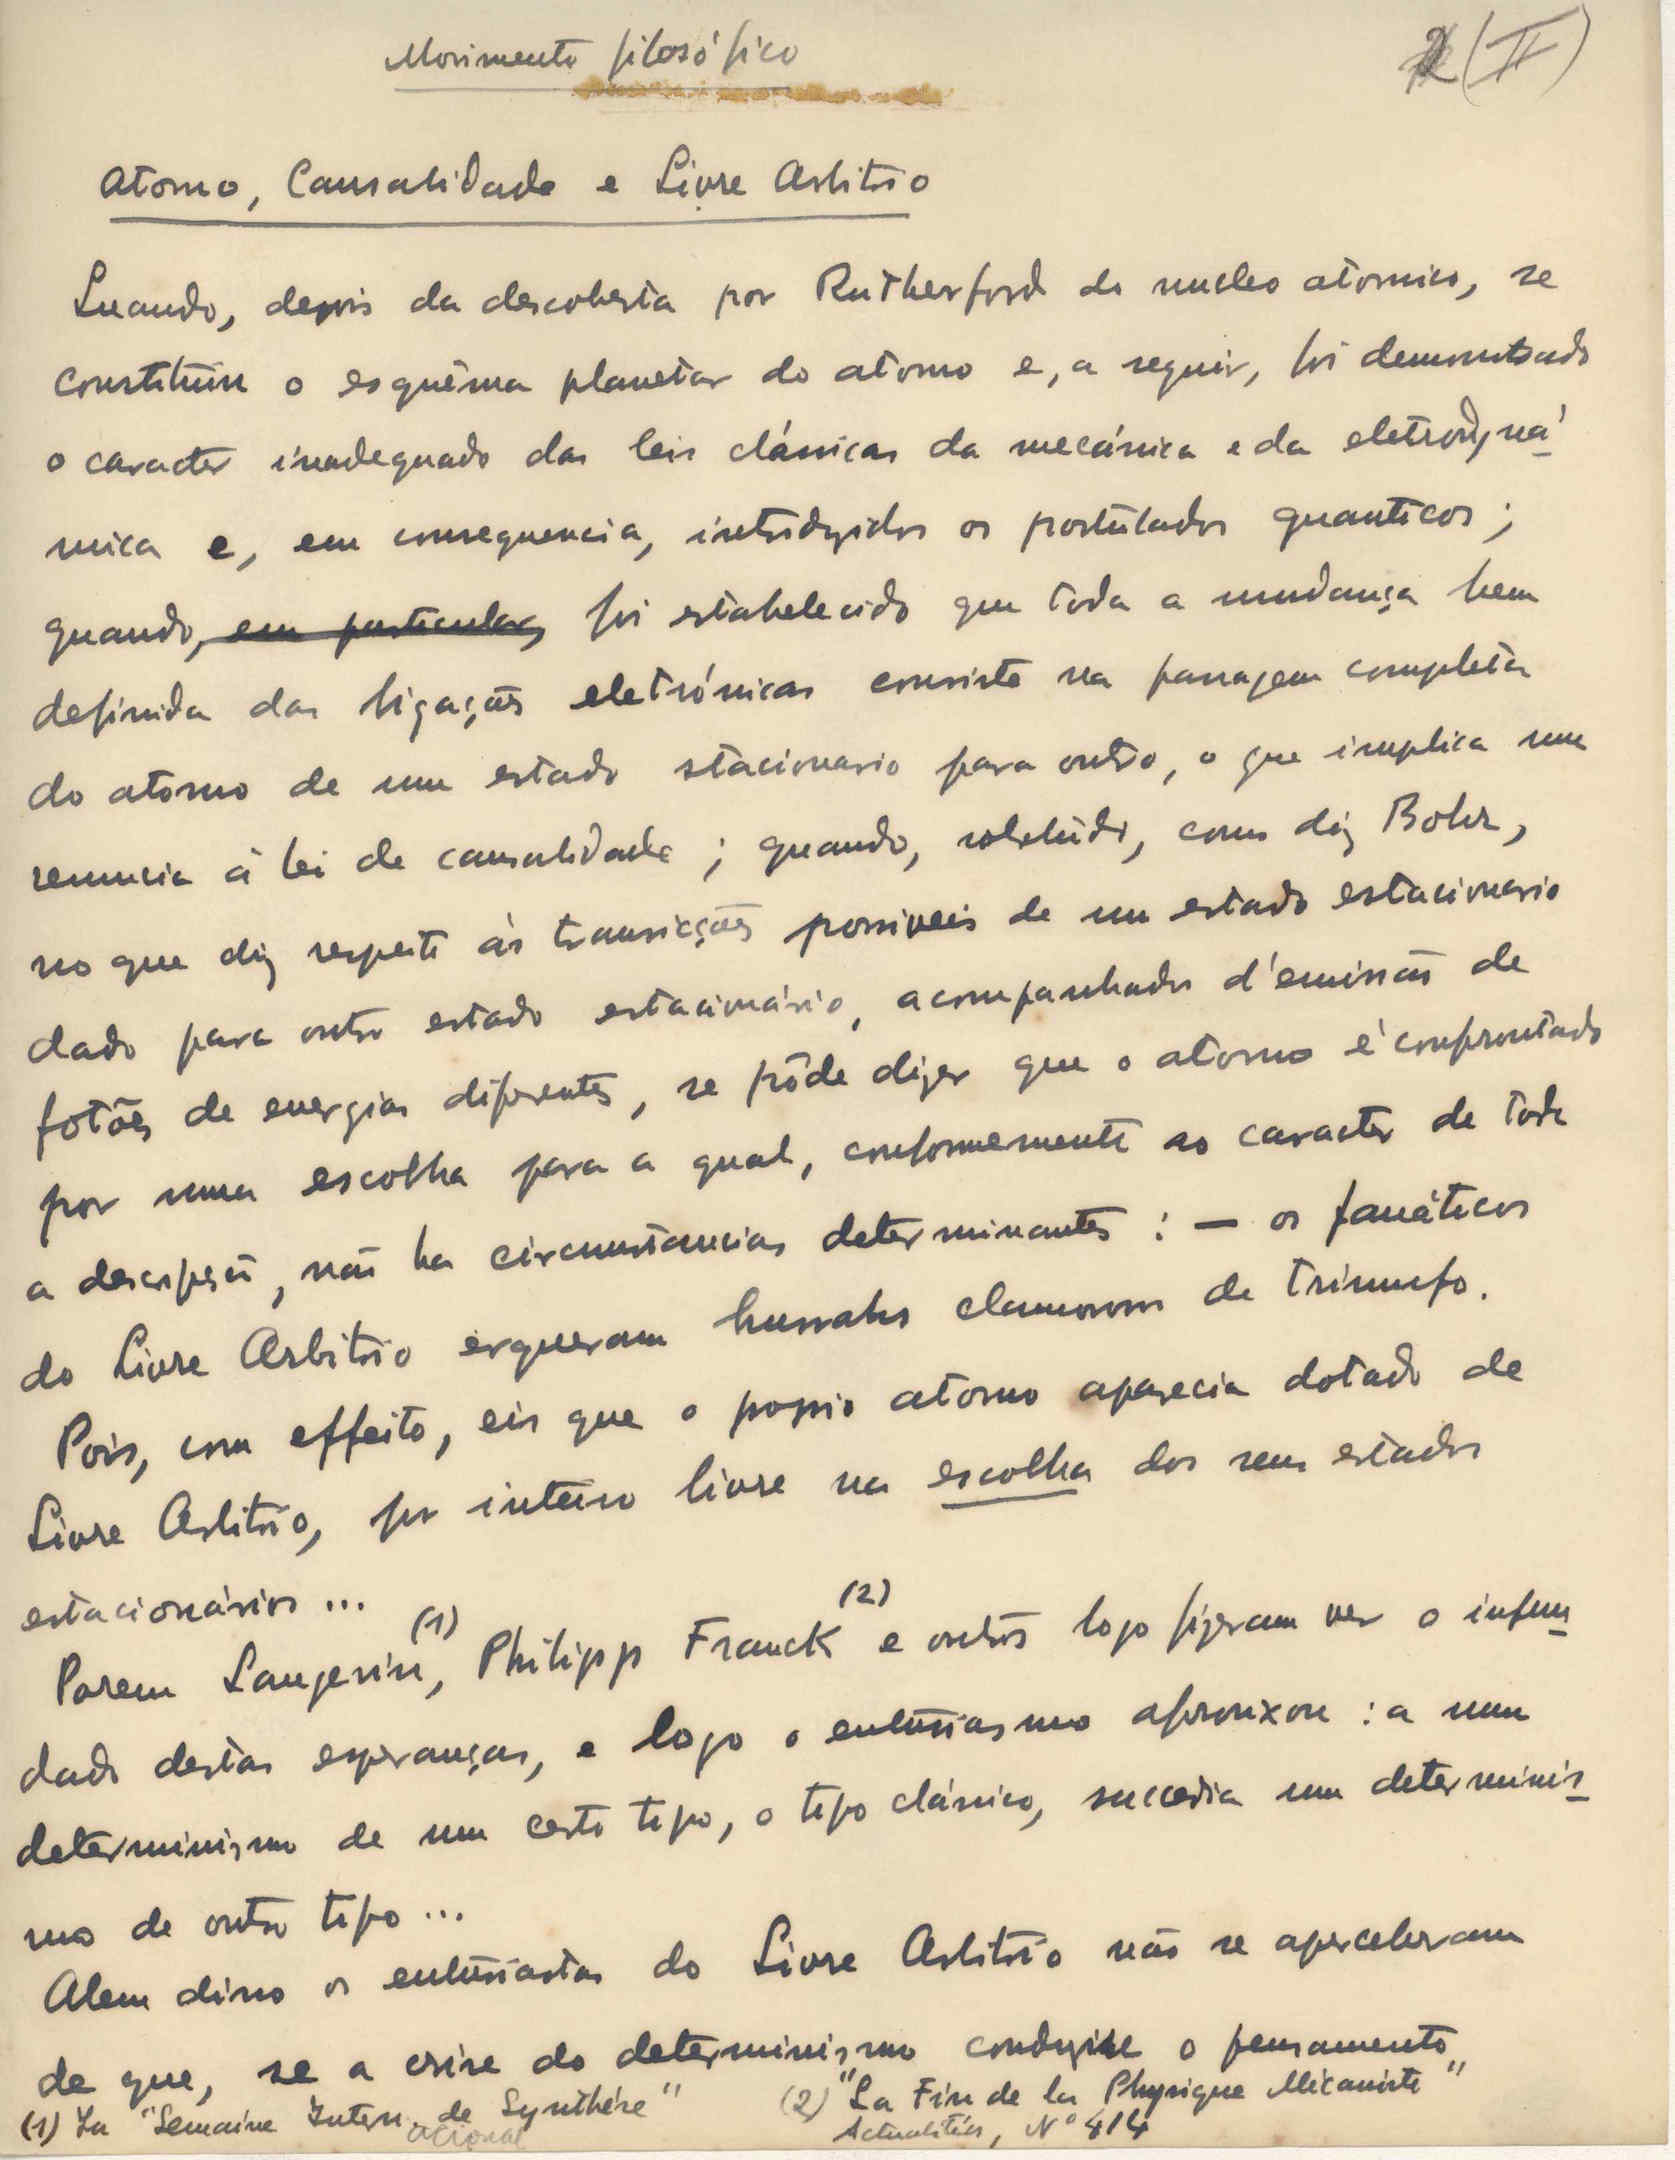 Movimento filosófico
2 (II)
Atomo, Causalidade e Livre Arbitrio
Quando, depois da descoberta por Rutherford do nucleo atomico, se
constituiu o esquêma planetar do atomo e, a seguir, foi demonstrado
o caracter inadequado das leis clássicas da mecánica e da eletrodyná-
mica e, em consequencia, introduzidos os postulados quanticos;
quando, em particular, foi estabelecido que toda a mudança bem
definida das ligações eletrónicas consiste na passagem completa
do atomo de um estado stacionario para outro, o que implica uma
renuncia á lei de causalidade; quando, sobretudo, como diz Bohr,
no que diz respeito ás transicções possiveis de um estado estacionario
dado para outro estado estacionário, acompanhados d'emissão de
fotões de energias diferentes, se póde dizer que o atomo é confrontado
por uma escolha para a qual, conformemente ao caracter de toda
a descripção, não ha circumstancias determinantes: — os fanáticos
do Livre Arbitrio ergueram hurrahs clamorosos de triumfo.
Pois, com effeito, eis que o proprio atomo aparecia dotado de
Livre Arbitrio, por inteiro livre na escolha dos seus estados
estacionários ...
Porem Langevin, (1) Philipp Franck (2) e outros logo fizeram ver o infun-
dado destas esperanças, e logo o entusiasmo afrouxou: a um
determinismo de um certo tipo, o tipo clássico, succedia um determinis-
mo de outro tipo ...
Alem disso os entusiastas do Livre Arbitrio não se aperceberam
de que, se a crise do determinismo conduzisse o pensamento
(1) In "Semaine Intern. de Synthése"
acional
(2) "La Fin de la Physique Mécaniste"
Actualités, Nº 414